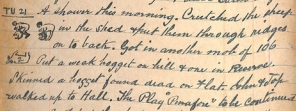 TU 21 A shower this morning. Crutched the sheep
in the shed & put them through ridges
on to back. Got in another mob of 106
Put a weak hogget on hill & one in Reserve.
Skinned a hogget found dead on Flat. John & I
walked up to Hall. The Play "Pinafore" to be continued